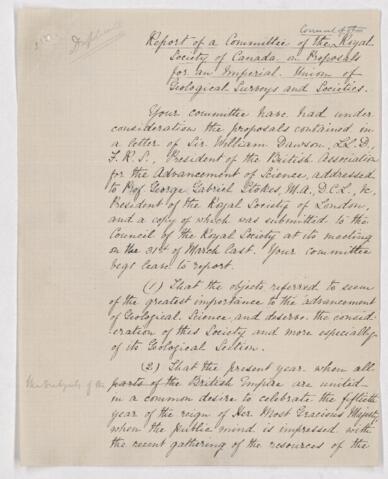 Duplicate
Council of the
Report of a Committee of the Royal
Society of Canada on Proposals
for an Imperial Union of
Geological Surveys and Societies.
Your committee have had under
consideration the proposals contained in
a letter of Sir William Dawson, LL.D.,
F.R.S., President of the British Association
for the Advancement of Science, addressed
to Prof. George Gabriel Stokes, M.A., D.C.L., &c,
President of the Royal Society of London,
and a copy of which was submitted to the
Council of the Royal Society at its meeting
on the 31st of March last. Your committee
begs leave to report.
(1) That the objects referred to seem
of the greatest importance to the advancement
of Geological Science, and deserve the consid-
eration of this Society and more especially
of its Geological Section.
(2) That the present year, when all
parts of the British Empire are united
in a common desire to celebrate the fiftieth
year of the reign of Her Most Gracious Majesty,
when the public mind is impressed with
the recent gathering of the resources of the